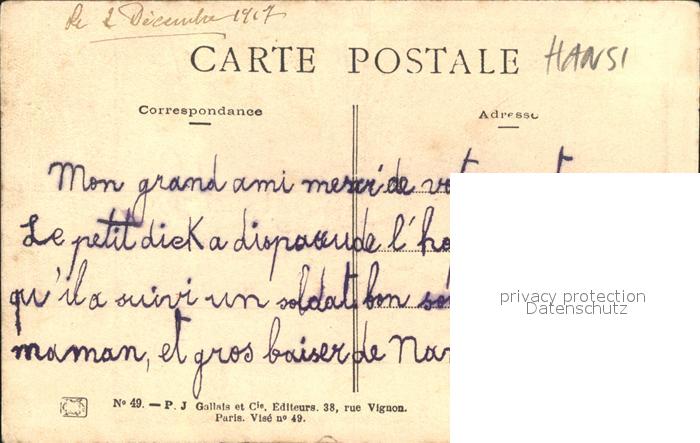 Le 2 Décembre 1917
CARTE POSTALE HANSI
Correspondance
Adresse
Mon grand ami merci de
Le petit dicK a disparu de l'
qu'il a suivi un soldat bon
maman, et gros baiser de
privacy protection
Datenschutz
No 49. — P. J Gallais et Cie. Éditeurs. 38, rue Vignon.
Paris. Visé no 49.